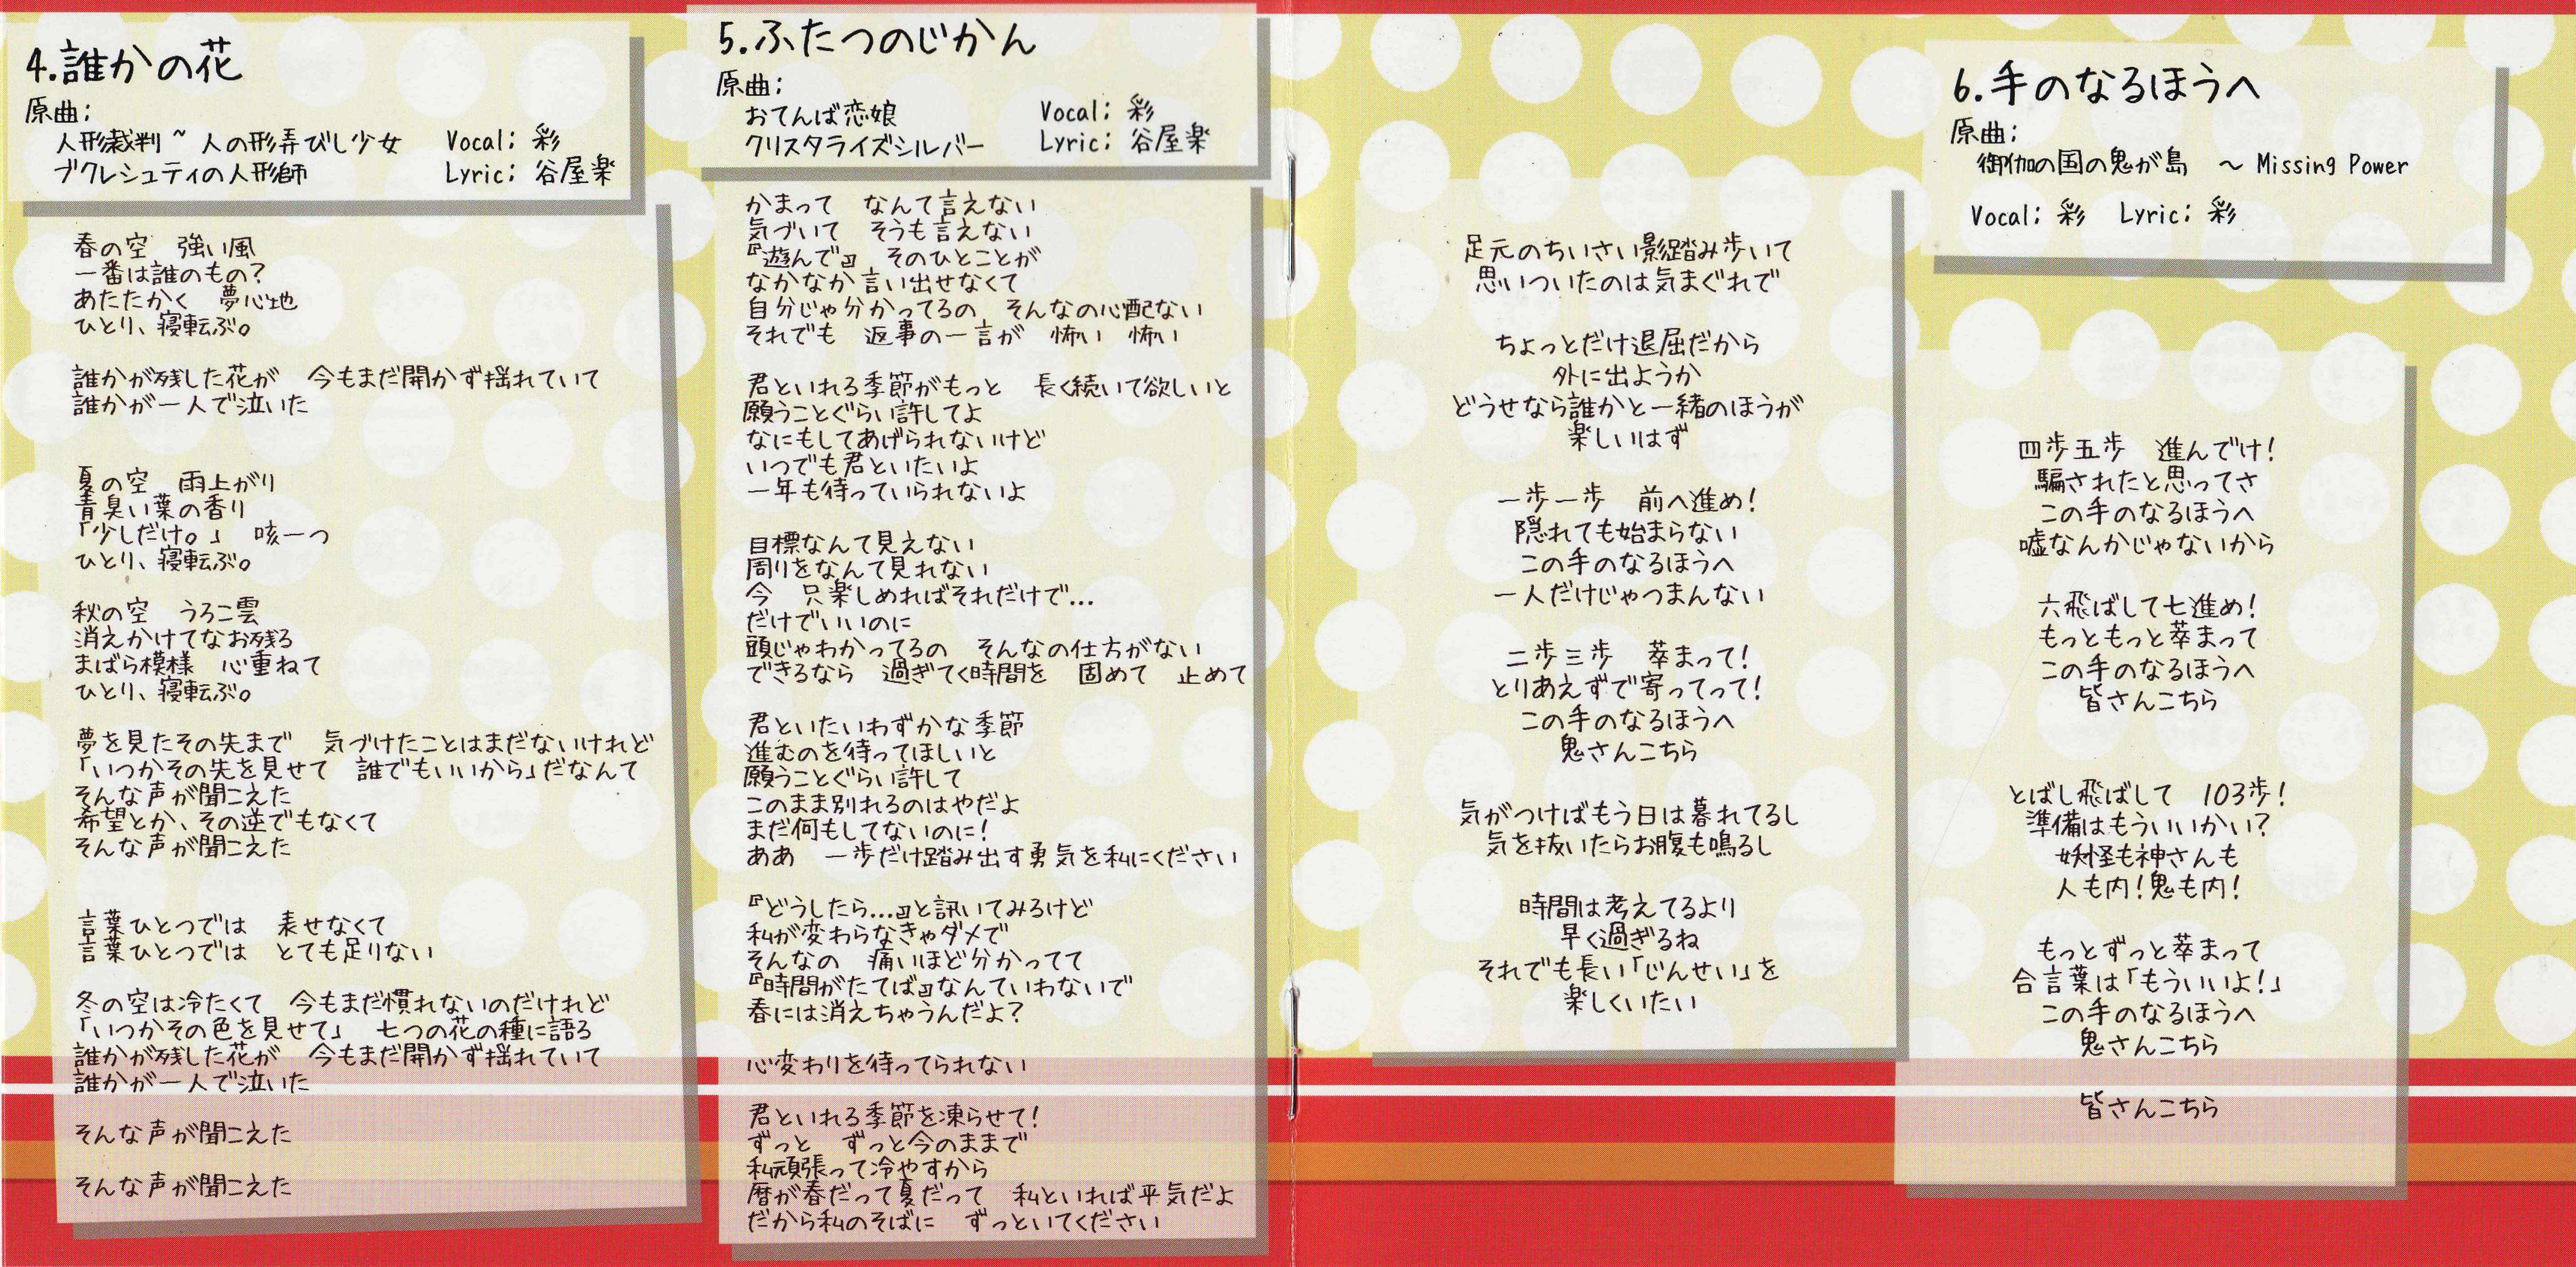 4.誰かの花
原曲;
人形裁判 ~ 人の形弄びし少女
ブクレシュティの人形師
Vocal; 彩
Lyric; 谷屋楽
春の空　強い風
一番は誰のもの?
あたたかく　夢心地
ひとり、寝転ぶ。
誰かが残した花が　今もまだ開かず揺れていて
誰かが一人で泣いた
夏の空　雨上がり
青臭い葉の香り
「少しだけ。」　咳一つ
ひとり、寝転ぶ。
秋の空　うろこ雲
消えかけてなお残る
まばら模様　心重ねて
ひとり、寝転ぶ。
夢を見たその先まで　気づけたことはまだないけれど
「いつかその先を見せて　誰でもいいから」だなんて
そんな声が聞こえた
希望とか、その逆でもなくて
そんな声が聞こえた
言葉ひとつでは　表せなくて
言葉ひとつでは　とても足りない
冬の空は冷たくて　今もまだ慣れないのだけれど
「いつかその色を見せて」　七つの花の種に語る
誰かが残した花が　今もまだ開かず揺れていて
誰かが一人で泣いた
そんな声が聞こえた
そんな声が聞こえた
5.ふたつのじかん
原曲;
おてんば恋娘
クリスタライズシルバー
Vocal; 彩
Lyric; 谷屋楽
かまって　なんて言えない
気づいて　そうも言えない
『遊んで』　そのひとことが
なかなか言い出せなくて
自分じゃ分かってるの　そんなの心配ない
それでも　返事の一言が　怖い　怖い
君といれる季節がもっと　長く続いて欲しいと
願うことぐらい許してよ
なにもしてあげられないけど
いつでも君といたいよ
一年も待っていられないよ
目標なんて見えない
周りをなんて見れない
今　只楽しめればそれだけで...
だけでいいのに
頭じゃわかってるの　そんなの仕方がない
できるなら　過ぎてく時間を　固めて　止めて
君といたいわずかな季節
進むのを待ってほしいと
願うことぐらい許して
このまま別れるのはやだよ
まだ何もしてないのに!
ああ　一歩だけ踏み出す勇気を私にください
『どうしたら...』と訊いてみるけど
私が変わらなきゃダメで
そんなの　痛いほど分かってて
『時間がたてば』なんていわないで
春には消えちゃうんだよ?
心変わりを待ってられない
君といれる季節を凍らせて!
ずっと　ずっと今のままで
私頑張って冷やすから
暦が春だって夏だって　私といれば平気だよ
だから私のそばに　ずっといてください
6.手のなるほうへ
原曲;
御伽の国の鬼が島　～ Missing Power
Vocal; 彩　Lyric; 彩
足元のちいさい影踏み歩いて
思いついたのは気まぐれで
ちょっとだけ退屈だから
外に出ようか
どうせなら誰かと一緒のほうが
楽しいはず
一歩一歩　前へ進め!
隠れても始まらない
この手のなるほうへ
一人だけじゃつまんない
二歩三歩　萃まって!
とりあえずで寄ってって!
この手のなるほうへ
鬼さんこちら
気がつけばもう日は暮れてるし
気を抜いたらお腹も鳴るし
時間は考えてるより
早く過ぎるね
それでも長い「じんせい」を
楽しくいたい
四歩五歩　進んでけ!
騙されたと思ってさ
この手のなるほうへ
嘘なんかじゃないから
六飛ばして七進め!
もっともっと萃まって
この手のなるほうへ
皆さんこちら
とばし飛ばして　103歩!
準備はもういいかい?
妖怪も神さんも
人も内!鬼も内!
もっとずっと萃まって
合言葉は「もういいよ!」
この手のなるほうへ
鬼さんこちら
皆さんこちら